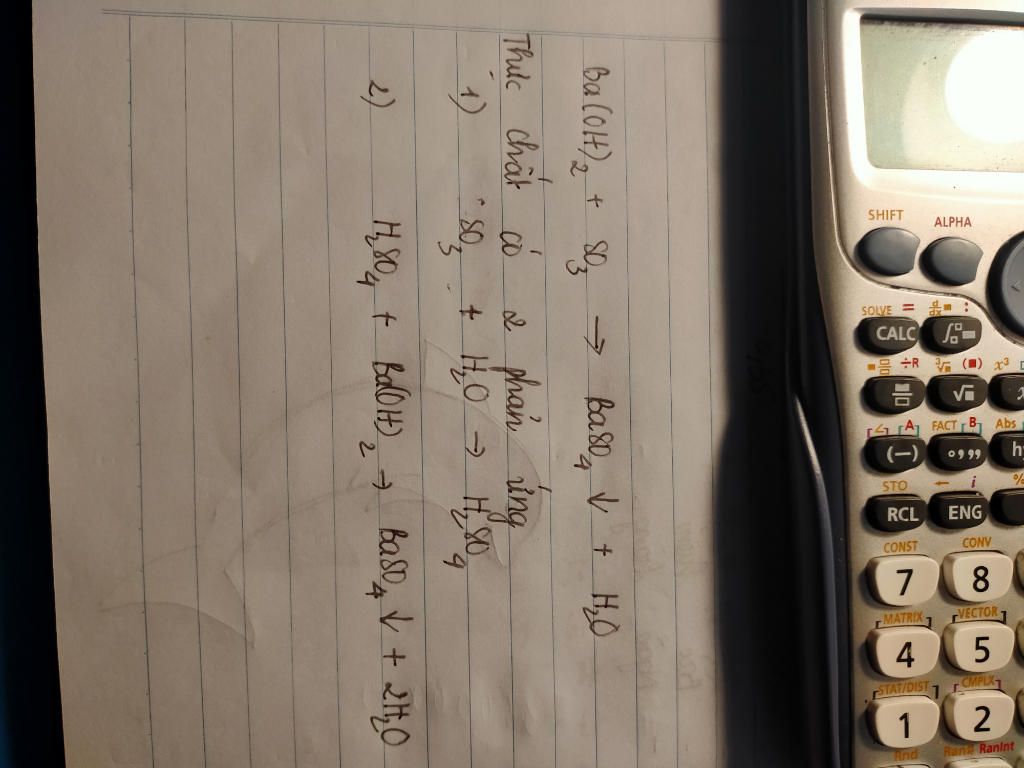 Ba(OH)₂ + SO₃ → BaSO₄↓ + H₂O
Thực chất có 2 phản ứng
1) SO₃ + H₂O → H₂SO₄
2) H₂SO₄ + Ba(OH)₂ → BaSO₄↓ + 2H₂O
SHIFT ALPHA
SOLVE = d/dx :
CALC ∫
÷R ³√ (■) x³
√■
[∠] [A] FACT [B] Abs
(−) °,,, hy
STO ← i %
RCL ENG
CONST CONV
7 8
[MATRIX] [VECTOR]
4 5
[STAT/DIST] [CMPLX]
1 2
Rnd Ran# RanInt